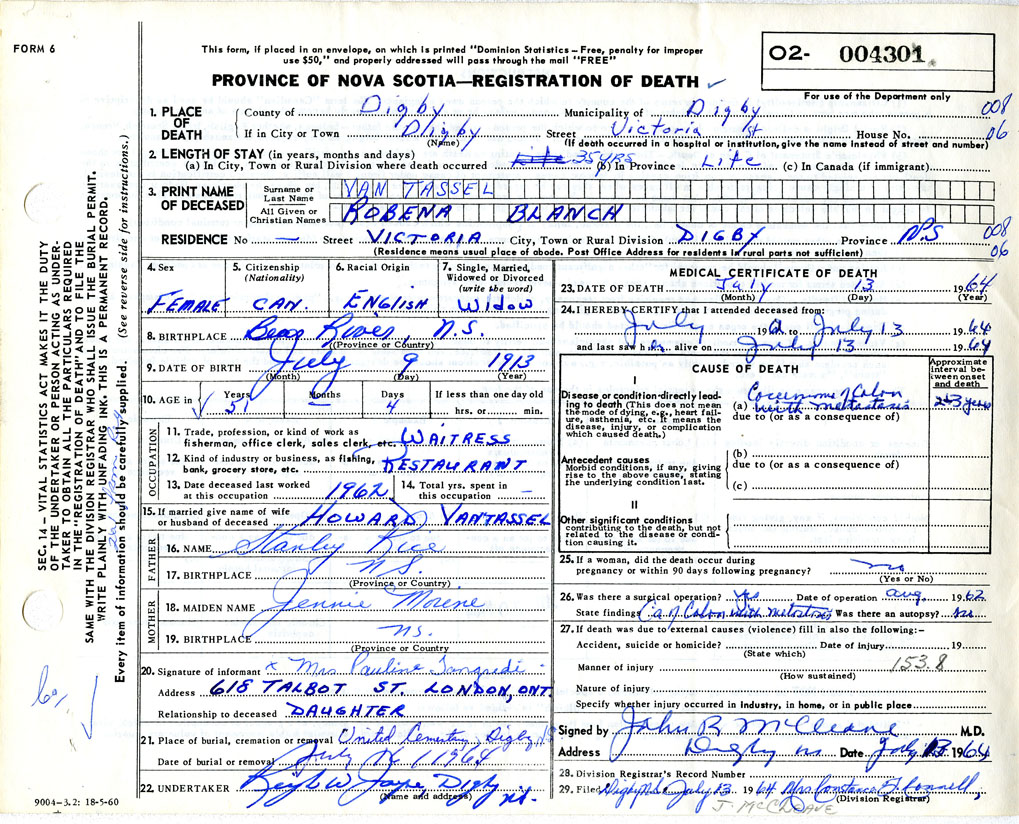 FORM 6
This form, if placed in an envelope, on which is printed "Dominion Statistics – Free, penalty for improper
use $50," and properly addressed will pass through the mail "FREE"
PROVINCE OF NOVA SCOTIA—REGISTRATION OF DEATH
02- 004301
For use of the Department only
1. PLACE OF DEATH County of Digby Municipality of Digby 008
If in City or Town Digby Street Victoria St House No. 06
(Name) (If death occurred in a hospital or institution, give the name instead of street and number)
2. LENGTH OF STAY (in years, months and days)
(a) In City, Town or Rural Division where death occurred Life 35 YRS (b) In Province Life (c) In Canada (if immigrant)
3. PRINT NAME OF DECEASED Surname or Last Name VAN TASSEL
All Given or Christian Names ROBENA BLANCH
RESIDENCE No — Street VICTORIA City, Town or Rural Division DIGBY Province N.S 008
(Residence means usual place of abode. Post Office Address for residents in rural parts not sufficient) 06
4. Sex FEMALE
5. Citizenship (Nationality) CAN.
6. Racial Origin ENGLISH
7. Single, Married, Widowed or Divorced (write the word) WIDOW
8. BIRTHPLACE Bear River, N.S.
(Province or Country)
9. DATE OF BIRTH July 9 1913
(Month) (Day) (Year)
10. AGE in Years 51 Months – Days 4 If less than one day old
hrs. or min.
OCCUPATION
11. Trade, profession, or kind of work as
fisherman, office clerk, sales clerk, etc. WAITRESS
12. Kind of industry or business, as fishing,
bank, grocery store, etc. RESTAURANT
13. Date deceased last worked at this occupation 1962 14. Total yrs. spent in this occupation –
15. If married give name of wife or husband of deceased HOWARD VANTASSEL
FATHER
16. NAME Stanley Rice
17. BIRTHPLACE N.S.
(Province or Country)
MOTHER
18. MAIDEN NAME Jennie Morene
19. BIRTHPLACE N.S.
(Province or Country
20. Signature of informant x Mrs Pauline
Address 618 TALBOT ST. LONDON, ONT.
Relationship to deceased DAUGHTER
21. Place of burial, cremation or removal United Cemetery, Digby, NS
Date of burial or removal July 1964
22. UNDERTAKER Digby N.S.
(Name and address)
9004-3.2: 18-5-60
MEDICAL CERTIFICATE OF DEATH
23. DATE OF DEATH July 13 1964
(Month) (Day) (Year)
24. I HEREBY CERTIFY that I attended deceased from:
July 19 to July 13 1964
and last saw h alive on July 13 1964
CAUSE OF DEATH
Approximate interval between onset and death
I
Disease or condition directly leading to death (This does not mean the mode of dying, e.g., heart failure, asthenia, etc. It means the disease, injury, or complication which caused death.)
(a) Carcinoma of Colon with metastasis 2-3 years
due to (or as a consequence of)
Antecedent causes
Morbid conditions, if any, giving rise to the above cause, stating the underlying condition last.
(b)
due to (or as a consequence of)
(c)
II
Other significant conditions
contributing to the death, but not related to the disease or condition causing it.
25. If a woman, did the death occur during
pregnancy or within 90 days following pregnancy? no
(Yes or No)
26. Was there a surgical operation? yes Date of operation aug. 1962
State findings Ca of Colon with metastasis Was there an autopsy? no
27. If death was due to external causes (violence) fill in also the following:–
Accident, suicide or homicide? Date of injury 19
(State which)
Manner of injury 153.8
(How sustained)
Nature of injury
Specify whether injury occurred in industry, in home, or in public place
Signed by John R McCleave M.D.
Address Digby ns Date July 13 1964
28. Division Registrar's Record Number
29. Filed Digby N.S. July 13 1964 Mrs Constance
(Division Registrar)
J. McCLEAVE
SEC. 14 – VITAL STATISTICS ACT MAKES IT THE DUTY
OF THE UNDERTAKER OR PERSON ACTING AS UNDER-
TAKER TO OBTAIN ALL THE PARTICULARS REQUIRED
IN THE "REGISTRATION OF DEATH" AND TO FILE THE
SAME WITH THE DIVISION REGISTRAR WHO SHALL ISSUE THE BURIAL PERMIT.
WRITE PLAINLY WITH UNFADING INK. THIS IS A PERMANENT RECORD.
Every item of information should be carefully supplied. (See reverse side for instructions.)